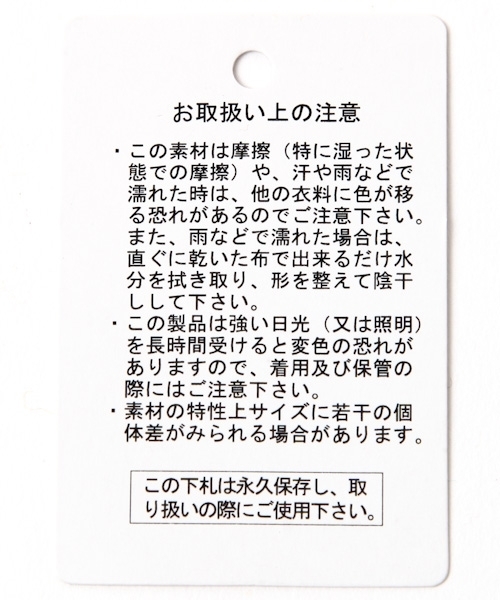 お取扱い上の注意
・この素材は摩擦（特に湿った状
態での摩擦）や、汗や雨などで
濡れた時は、他の衣料に色が移
る恐れがあるのでご注意下さい。
また、雨などで濡れた場合は、
直ぐに乾いた布で出来るだけ水
分を拭き取り、形を整えて陰干
しして下さい。
・この製品は強い日光（又は照明）
を長時間受けると変色の恐れが
ありますので、着用及び保管の
際にはご注意下さい。
・素材の特性上サイズに若干の個
体差がみられる場合があります。
この下札は永久保存し、取
り扱いの際にご使用下さい。